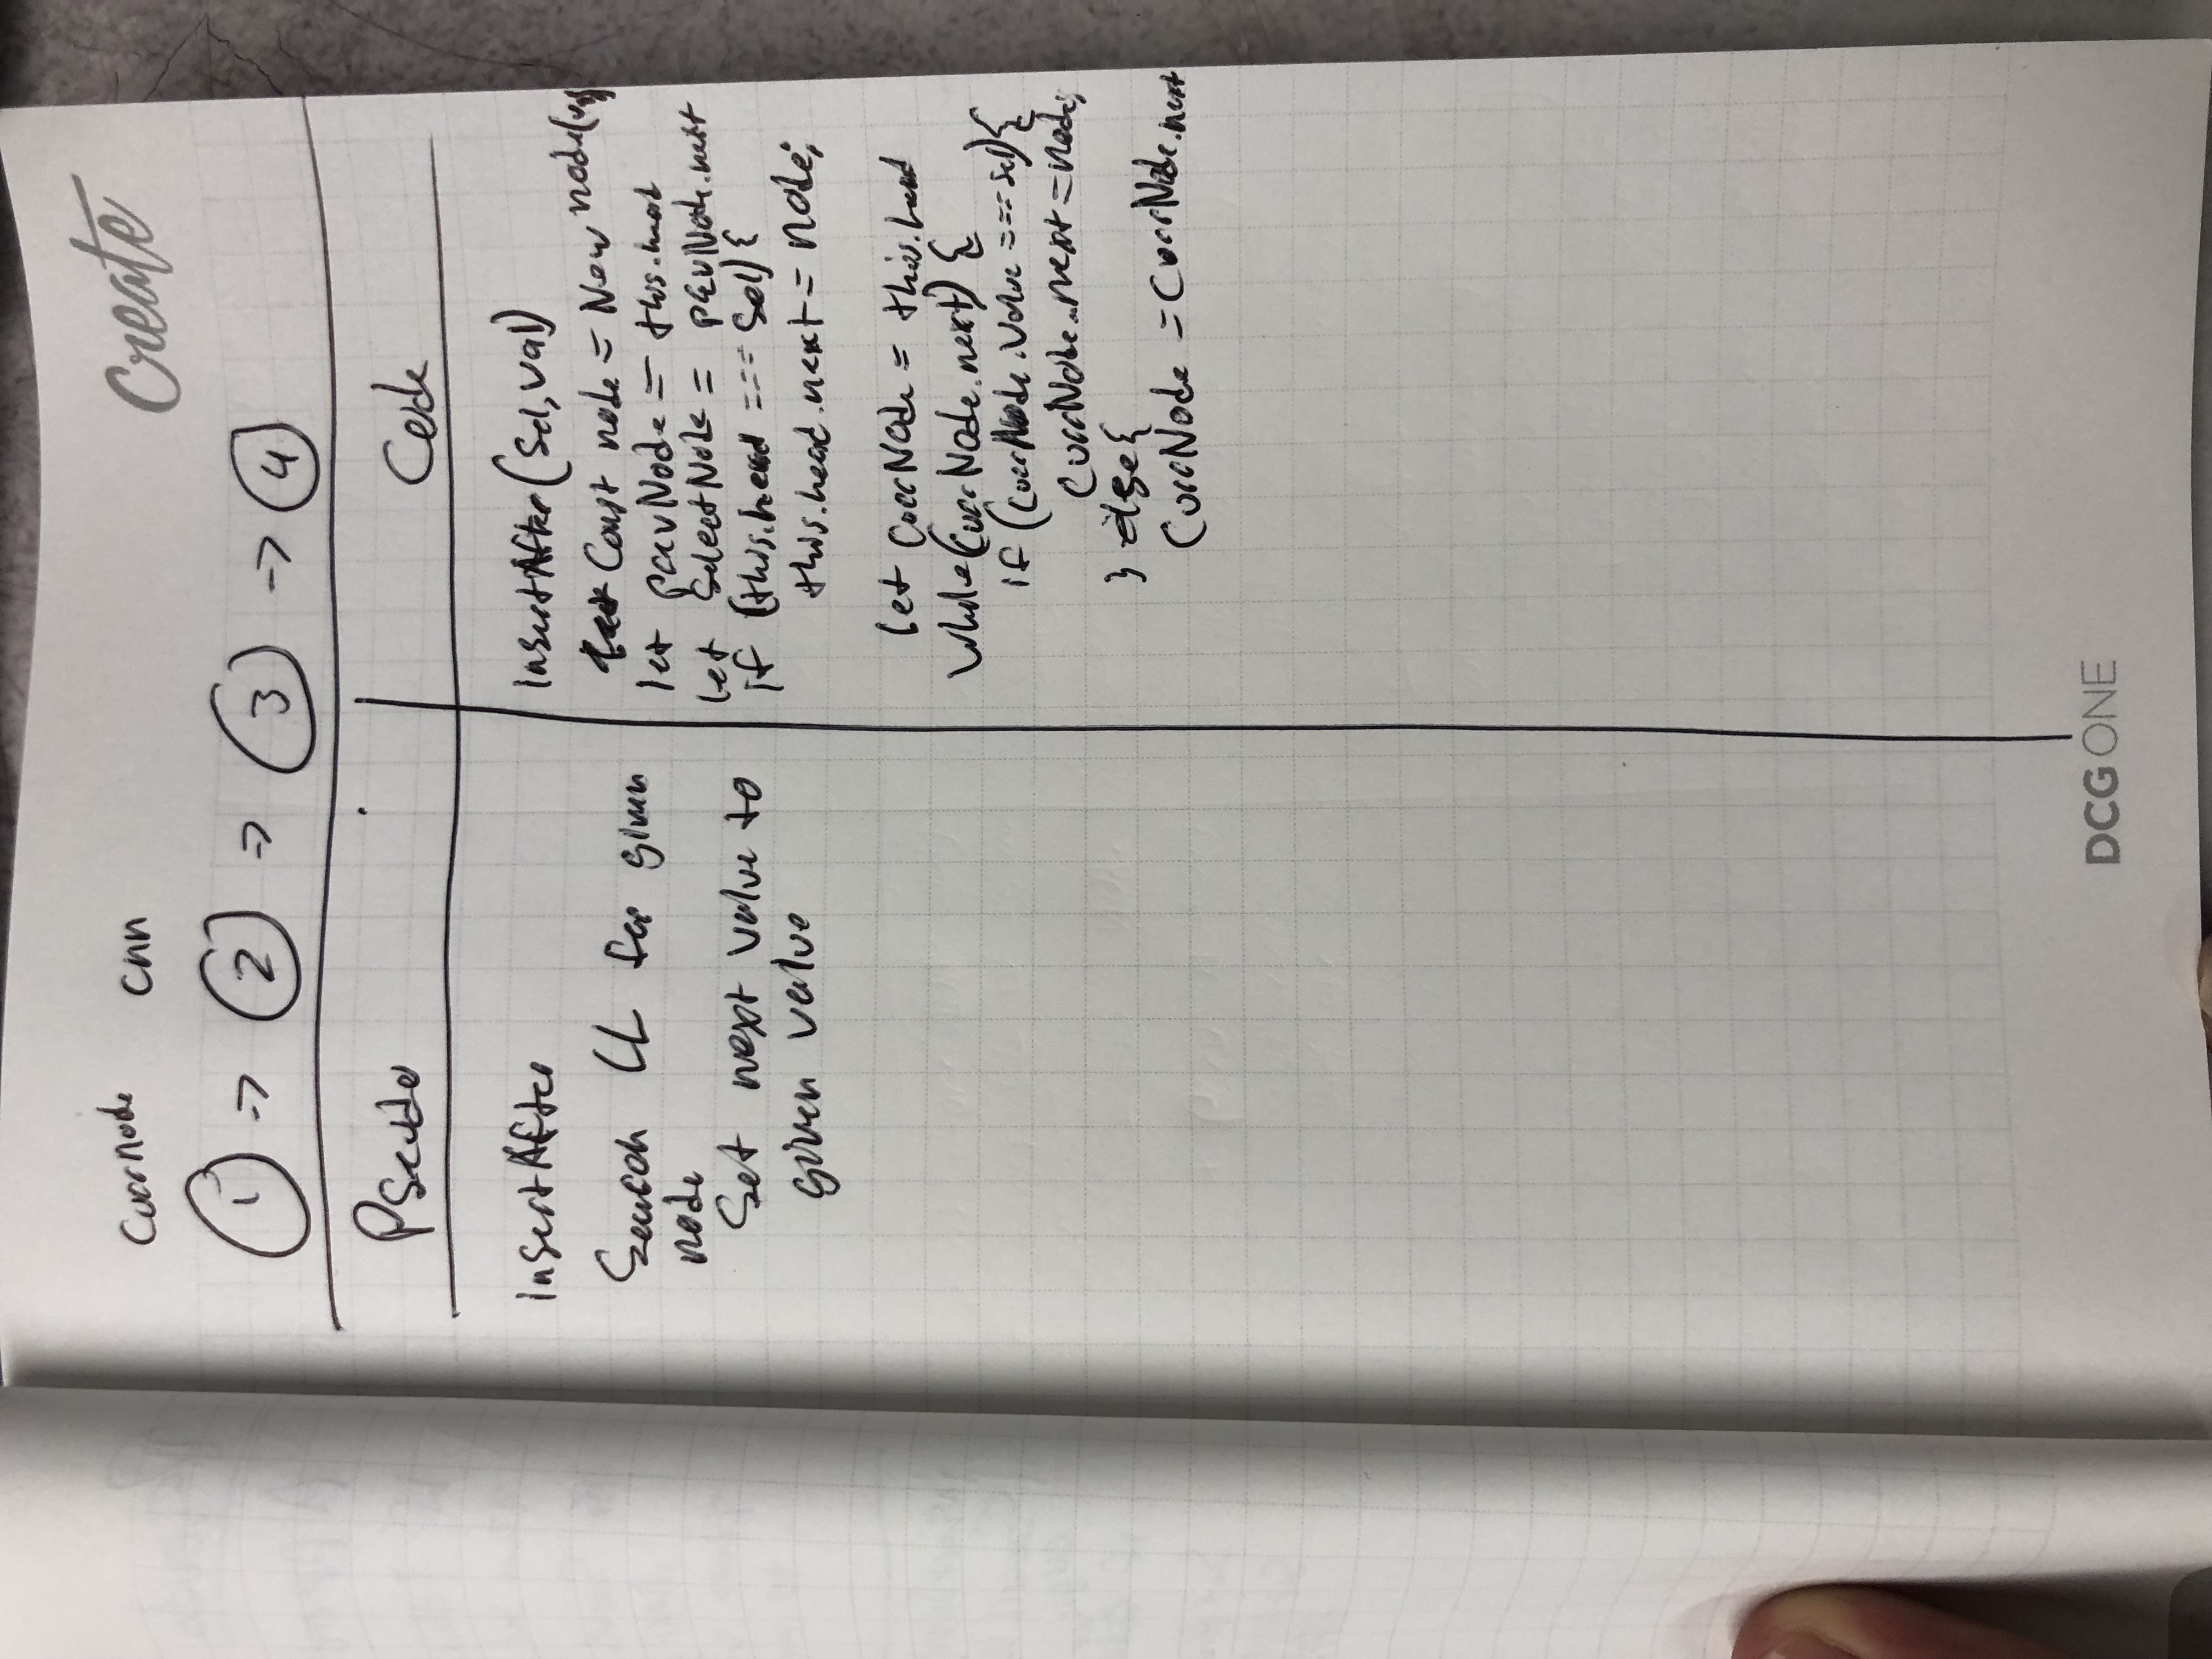 Create
CurrNode cnn
1 -> 2 -> 3 -> 4
Pseudo
Code
insertAfter
Search LL for given
node
Set next value to
given value
insertAfter(Sel, val)
Const node = New node(val)
let prevNode = this.head
let SelectNode = prevNode.next
if (this.head === Sel) {
this.head.next = node;
let currNode = this.head
while(currNode.next) {
if (currNode.value === sel) {
currNode.next = node;
} else {
CurrNode = CurrNode.next
DCG ONE